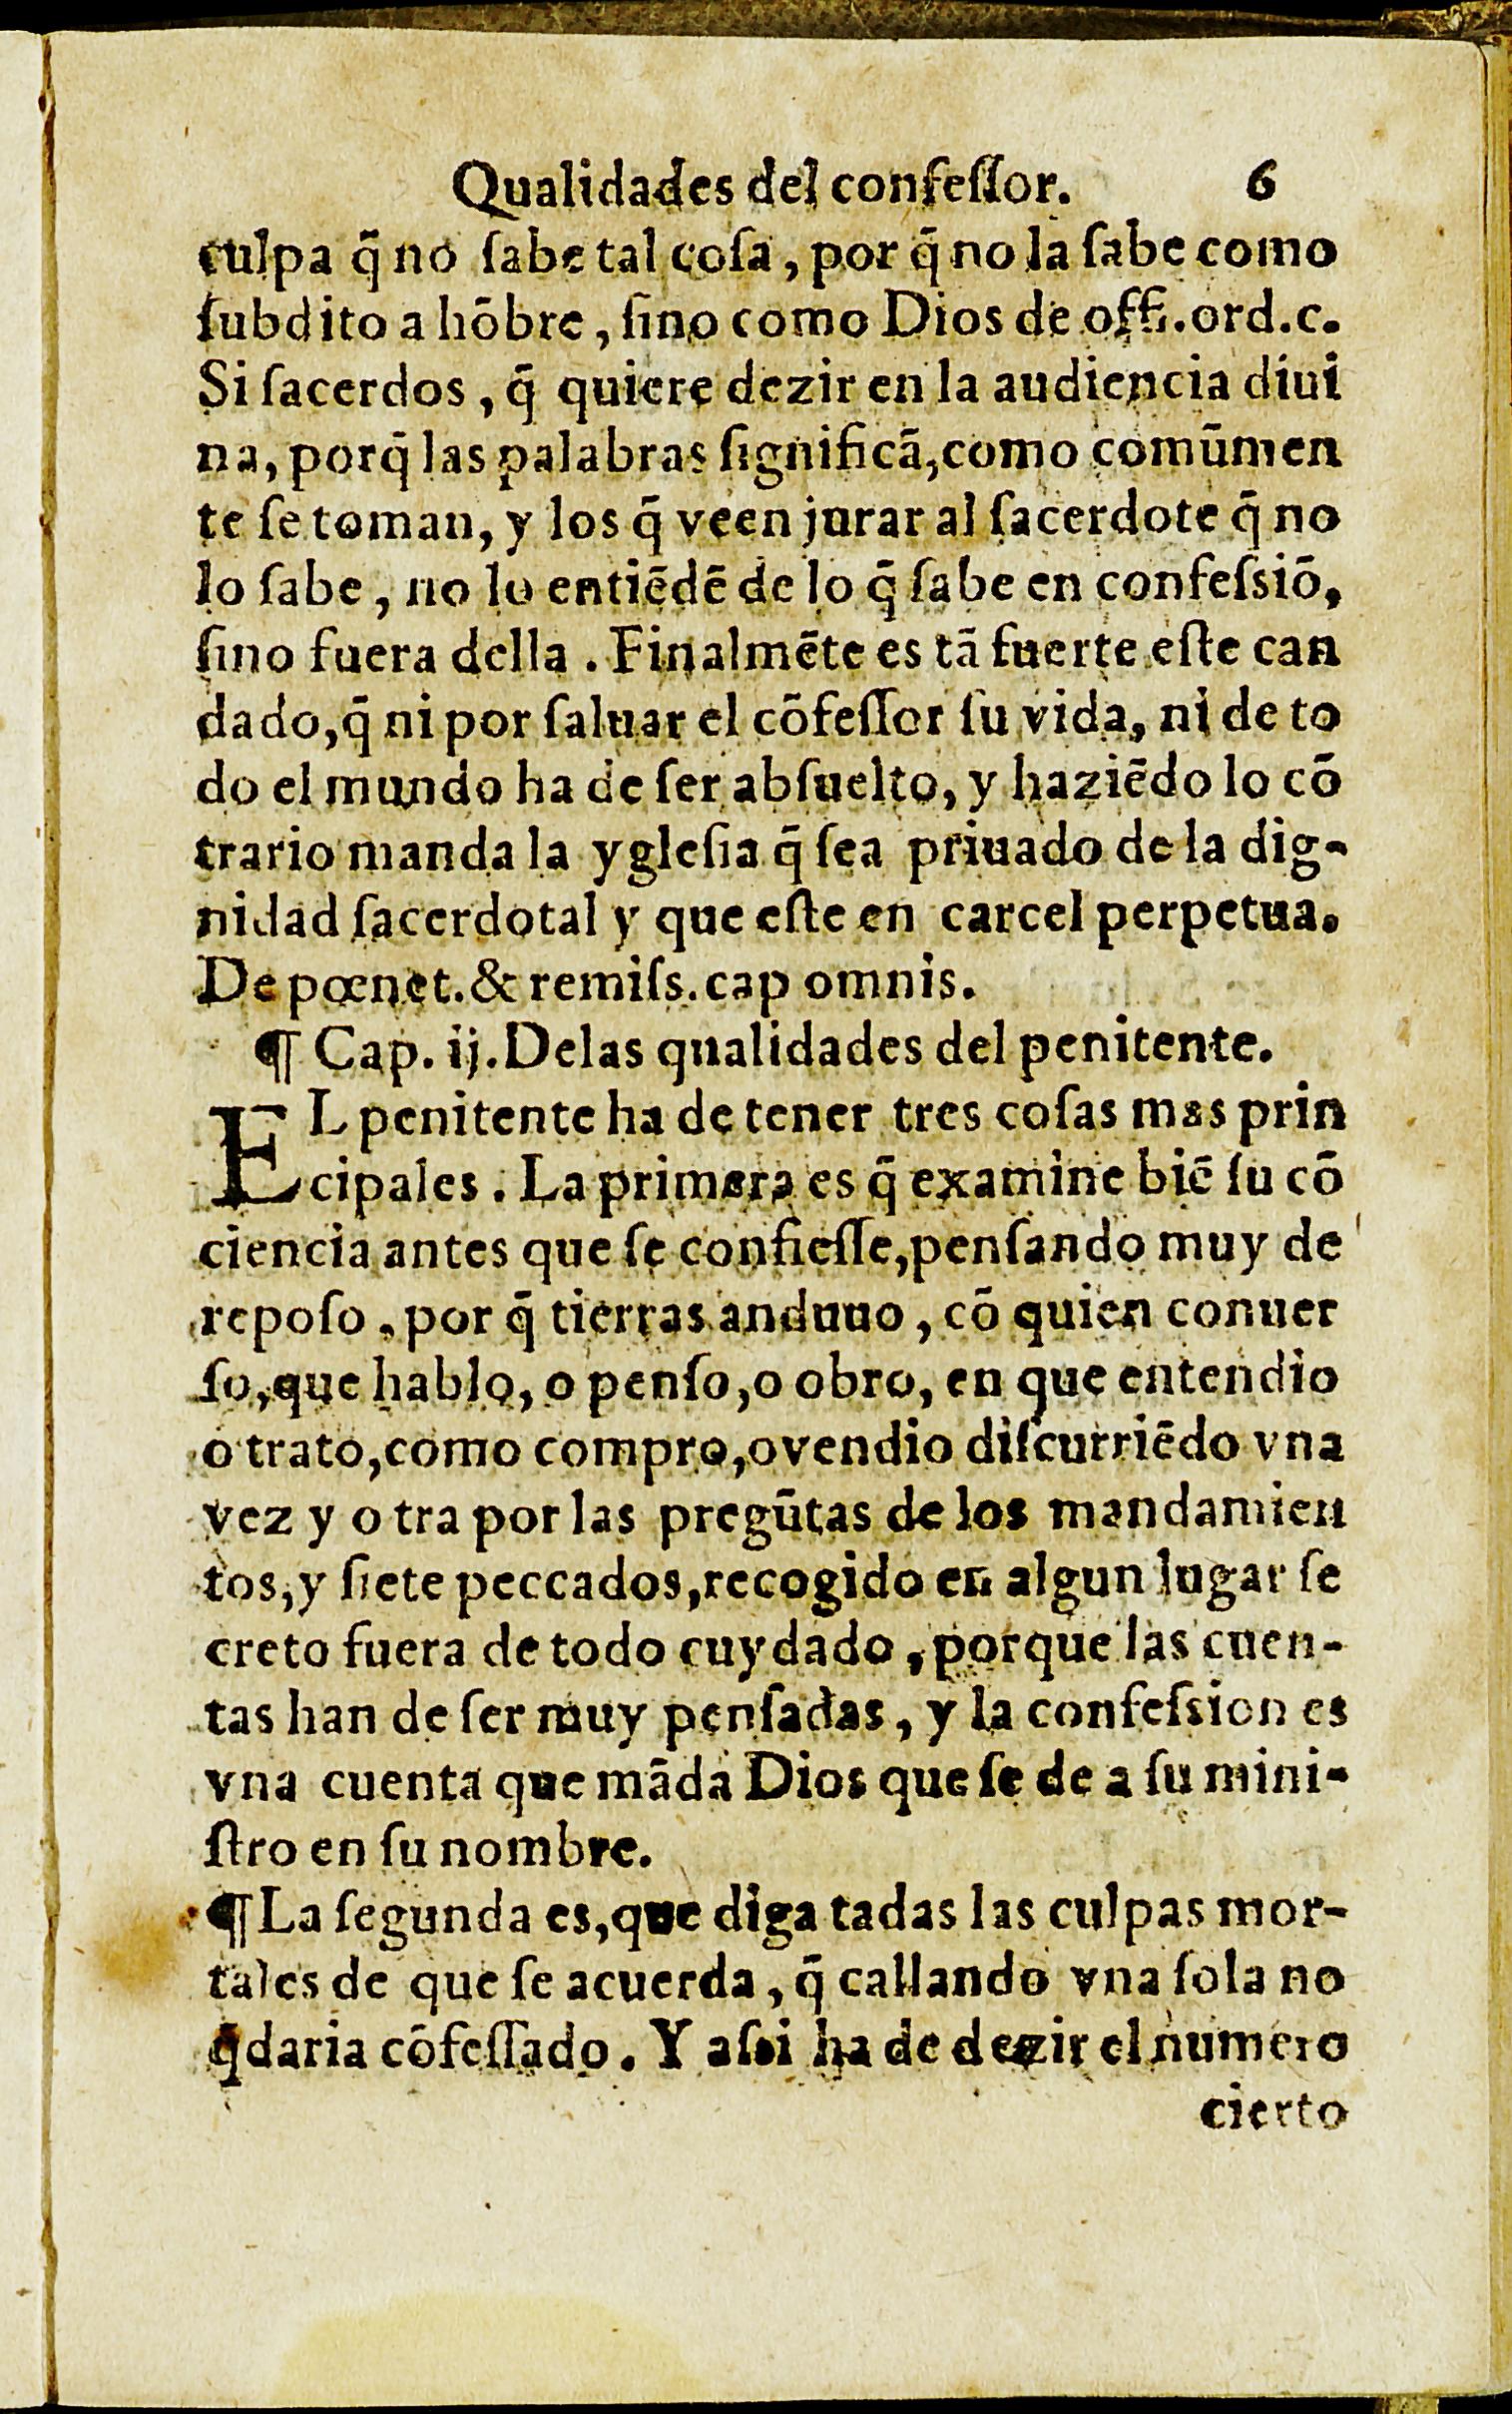 Qualidades del confeſſor. 6
culpa q̃ no ſabe tal coſa, por q̃ no la ſabe como
ſubdito a hõbre, ſino como Dios de offi. ord. c.
Si ſacerdos, q̃ quiere dezir en la audiencia diui
na, porq̃ las palabras ſignificã, como comũmen
te ſe toman, y los q̃ veen jurar al ſacerdote q̃ no
lo ſabe, no lo entiẽdẽ de lo q̃ ſabe en confeſsiõ,
ſino fuera della. Finalmẽte es tã fuerte eſte can
dado, q̃ ni por ſaluar el cõfeſſor ſu vida, ni de to
do el mundo ha de ſer abſuelto, y haziẽdo lo cõ
trario manda la ygleſia q̃ ſea priuado de la dig-
nidad ſacerdotal y que eſte en carcel perpetua.
De pœnet. & remiſs. cap omnis.
¶ Cap. ij. Delas qualidades del penitente.
EL penitente ha de tener tres coſas mas prin
cipales. La primera es q̃ examine biẽ ſu cõ
ciencia antes que ſe confieſſe, penſando muy de
repoſo, por q̃ tierras anduuo, cõ quien conuer
ſo, que hablo, o penſo, o obro, en que entendio
o trato, como compro, o vendio diſcurriẽdo vna
vez y otra por las pregũtas de los mandamien
tos, y ſiete peccados, recogido en algun lugar ſe
creto fuera de todo cuydado, porque las cuen-
tas han de ſer muy penſadas, y la confeſsion es
vna cuenta que mãda Dios que ſe de a ſu mini-
ſtro en ſu nombre.
¶ La ſegunda es, que diga tadas las culpas mor-
tales de que ſe acuerda, q̃ callando vna ſola no
q̃daria cõfeſſado. Y aſsi ha de dezir el numero
cierto